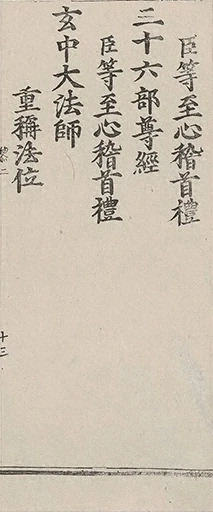 臣等至心稽首禮
三十六部尊經
臣等至心稽首禮
玄中大法師
重稱法位
十三